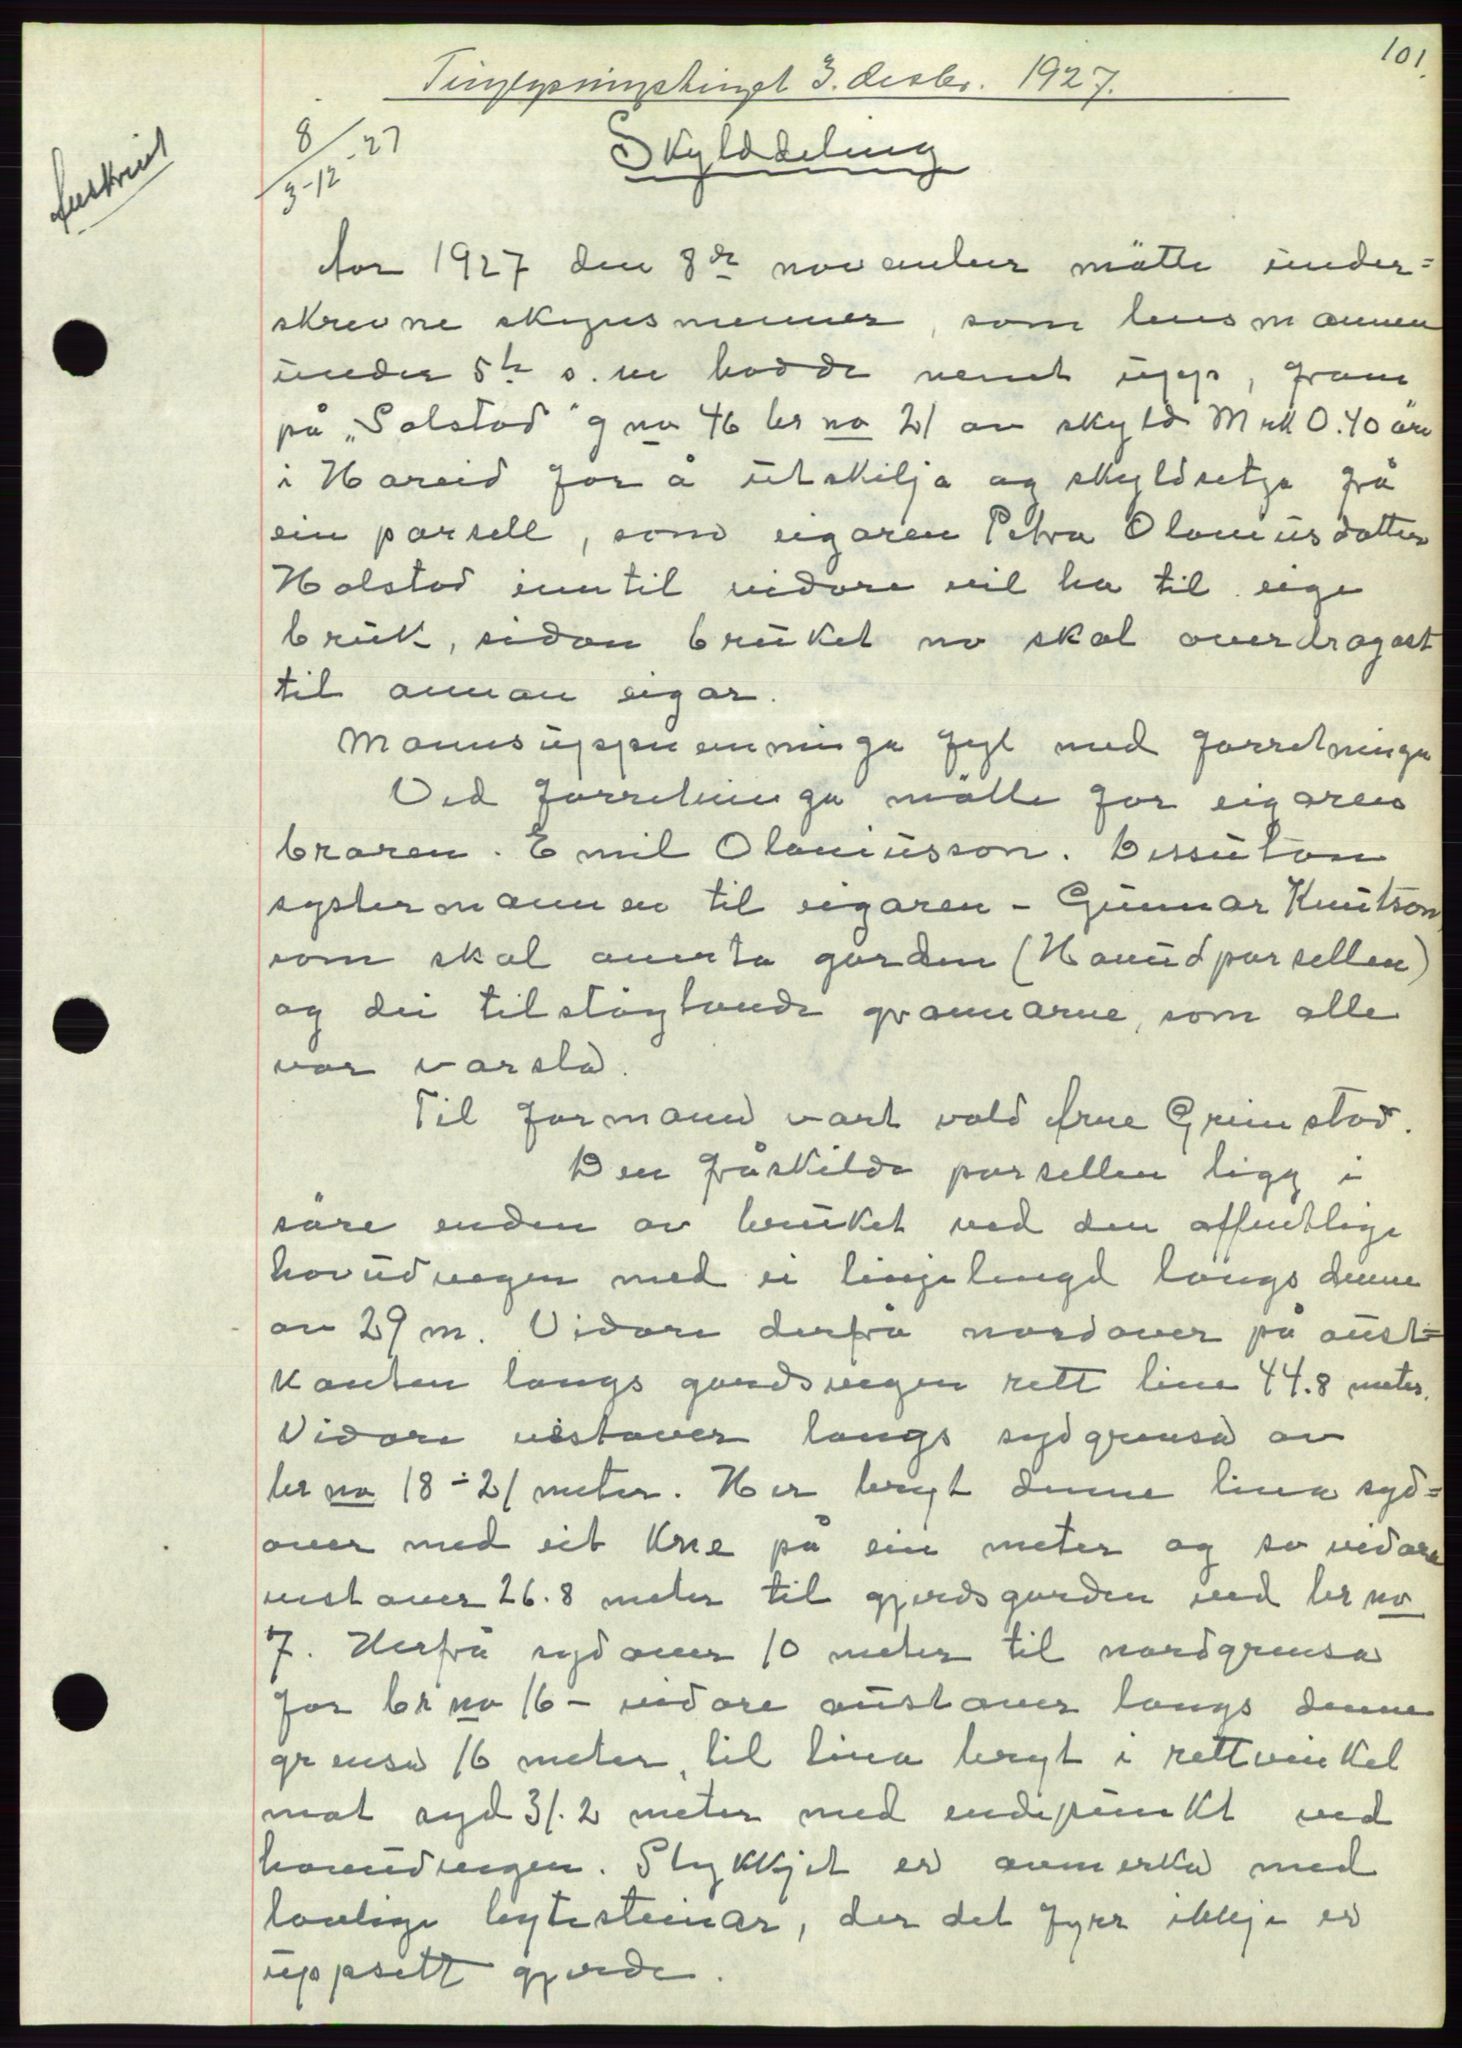 101.
Tinglysningstinget 3. desbr. 1927.
8/3-12-27
Avskrift
Skylddeling
Aar 1927 den 8de november mötte under=
skrevne skjynsmenner, som lensmannen
under 5te s. m hadde nemt upp, fram
på „Solstad" g no 46 br no 21 av skyld Mrk 0.40 öre
i Hareid for å utskilja og skyldsetja frå
ein parsell, som eigaren Petra Olaniusdatter
Holstad inntil vidare vil ha til eige
bruk, sidan bruket no skal overdragast
til annan eigar.
Mannsuppnemninga fyl med forretninga
Ved forretninga mötte for eigaren
broren. Emil Olaniusson. Dessutan
systermannen til eigaren - Gunnar Knutson,
som skal overta garden (Hovudparsellen)
og dei tilstøytande grannarne, som alle
var varsla.
Til formann vart vald Arne Grimstad.
Den fråskilde parsellen ligg i
söre enden av bruket ved den offentlige
hovudvegen med ei linjelengd langs denne
av 29 m. Vidare derfrå nordover på aust=
kanten langs gardsvegen rett line 44.8 meter.
Vidare vestover langs sydgrensa av
br no 18 - 21 meter. Her bryt denne lina syd=
over med eit kne på ein meter og so vidare
vestover 26.8 meter til gjerdsgarden ved br no
7. Herfrå sydover 10 meter til nordgrensa
for br no 16 - vidare austover langs denne
grensa 16 meter, til lina bryt i rettvinkel
mot syd 31.2 meter med endepunkt ved
hovudvegen. Stykkjet er avmerka med
lovlige byttesteinar, der det fyrr ikkje er
uppsett gjerde.